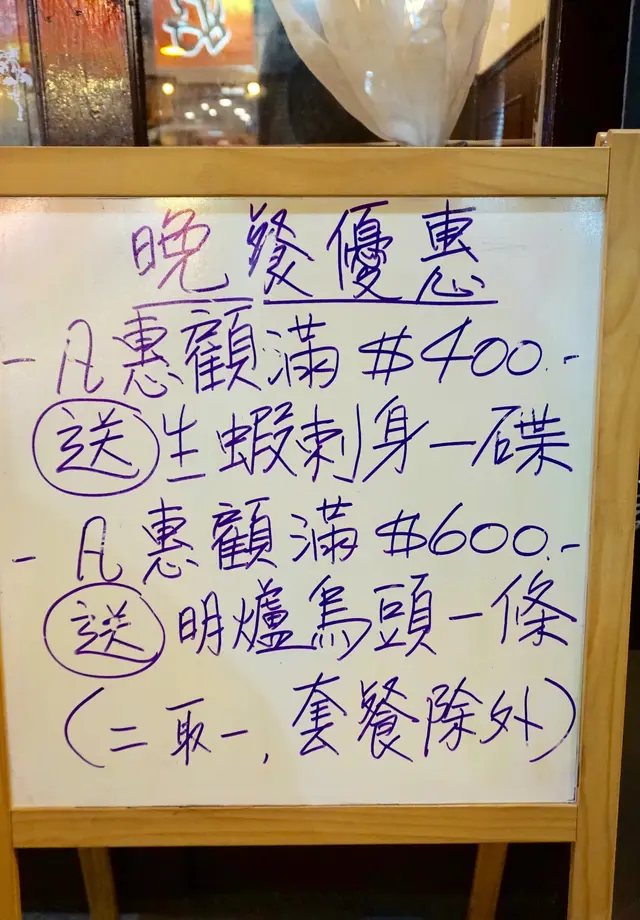 晚餐優惠
- 凡惠顧滿 $400.-
送 生蝦刺身一碟
- 凡惠顧滿 $600.-
送 明爐烏頭一條
(二取一, 套餐除外)